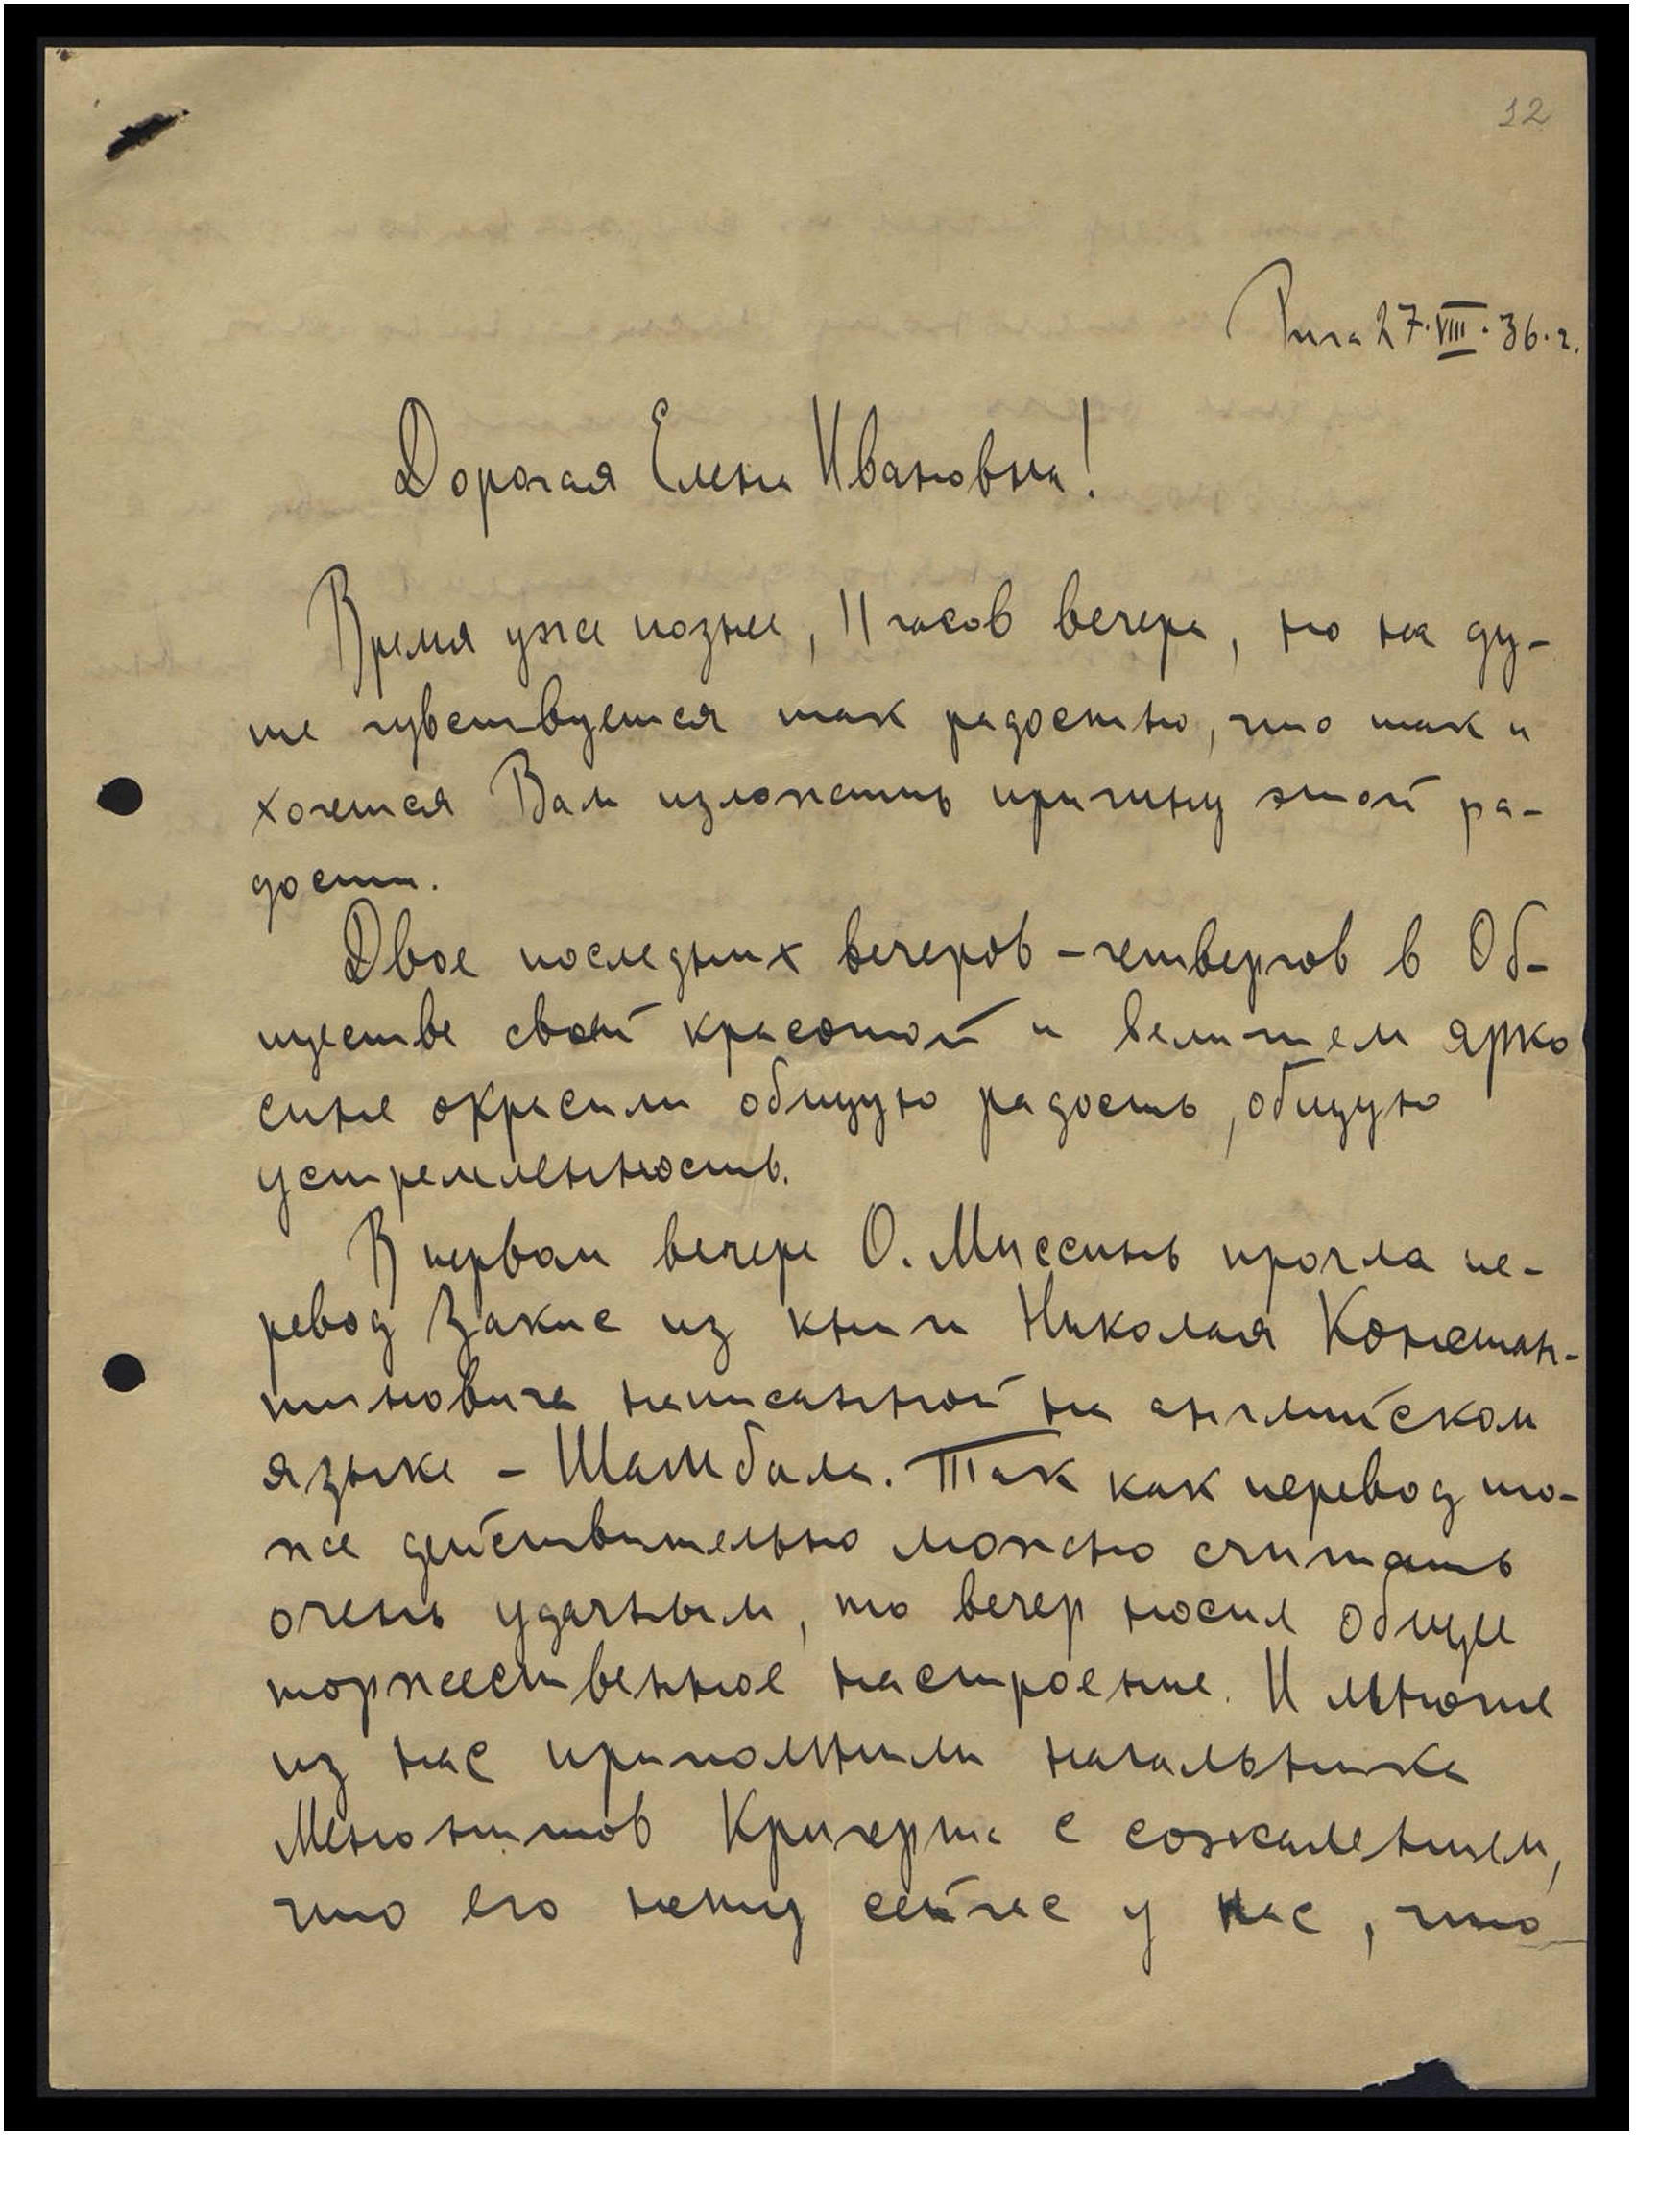 12
Рига 27.VIII.36.г.
Дорогая Елена Ивановна!
Время уже позднее, 11 часов вечера, но на ду-
ше чувствуется так радостно, что так и
хочется Вам изложить причину этой ра-
дости.
Двое последних вечеров - четвергов в Об-
ществе своей красотой и величием ярко
синие окрасили общую радость, общую
устремленность.
В первом вечере О. Миссинь прочла пе-
ревод Закис из книги Николая Констан-
тиновича написанной на английском
языке - Шамбала. Так как перевод то-
же действительно можно считать
очень удачным, то вечер носил общее
торжественное настроение. И многие
из нас припомнили начальника
Менонитов Кригерта с сожалением,
что его нету сейчас у нас, что